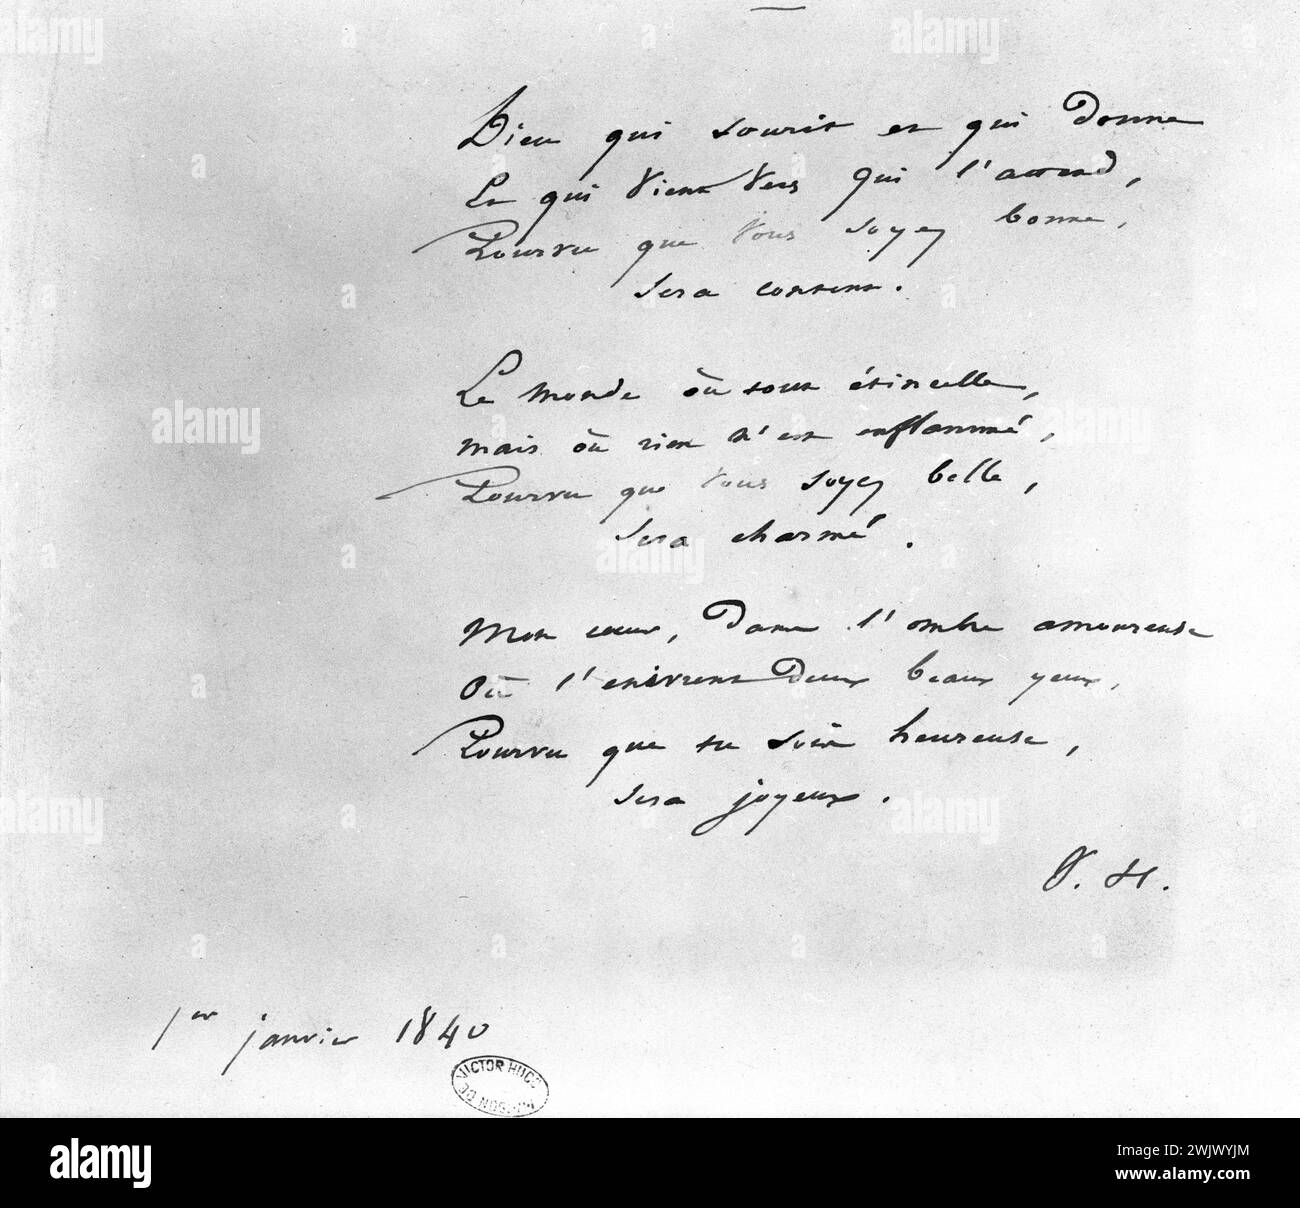 Dieu qui sourit et qui donne
Et qui vient vers qui l'attend,
Pourvu que vous soyez bonne,
sera content.
Le monde où tout étincelle,
mais où rien n'est enflammé,
Pourvu que vous soyez belle,
sera charmé.
Mon cœur, dans l'ombre amoureuse
Où l'enivrent deux beaux yeux,
Pourvu que tu sois heureuse,
sera joyeux.
V. H.
1er janvier 1840
MAISON DE VICTOR HUGO
alamy
Image ID: 2WJWYJM
www.alamy.com